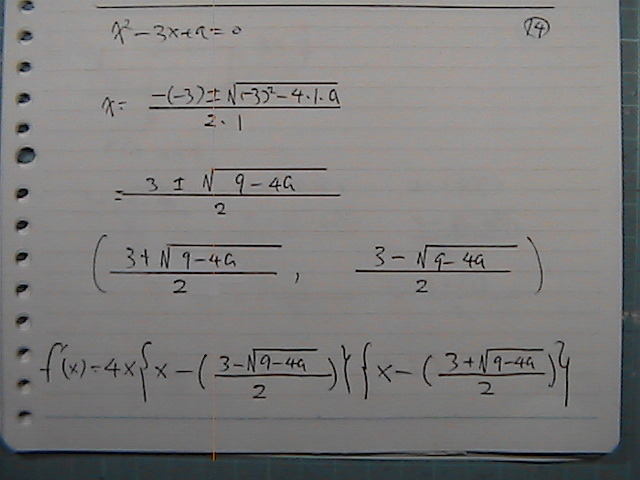 x² - 3x + a = 0 ⑭
x = (-(-3) ± √((-3)² - 4·1·a)) / (2·1)
= (3 ± √(9 - 4a)) / 2
( (3 + √(9 - 4a)) / 2 , (3 - √(9 - 4a)) / 2 )
f'(x) = 4x{x - ((3 - √(9 - 4a)) / 2)}{x - ((3 + √(9 - 4a)) / 2)}